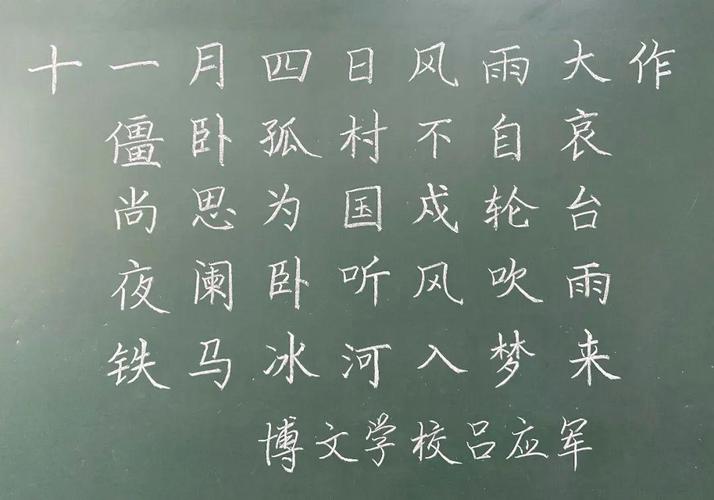 十一月四日风雨大作
僵卧孤村不自哀
尚思为国戍轮台
夜阑卧听风吹雨
铁马冰河入梦来
博文学校吕应军